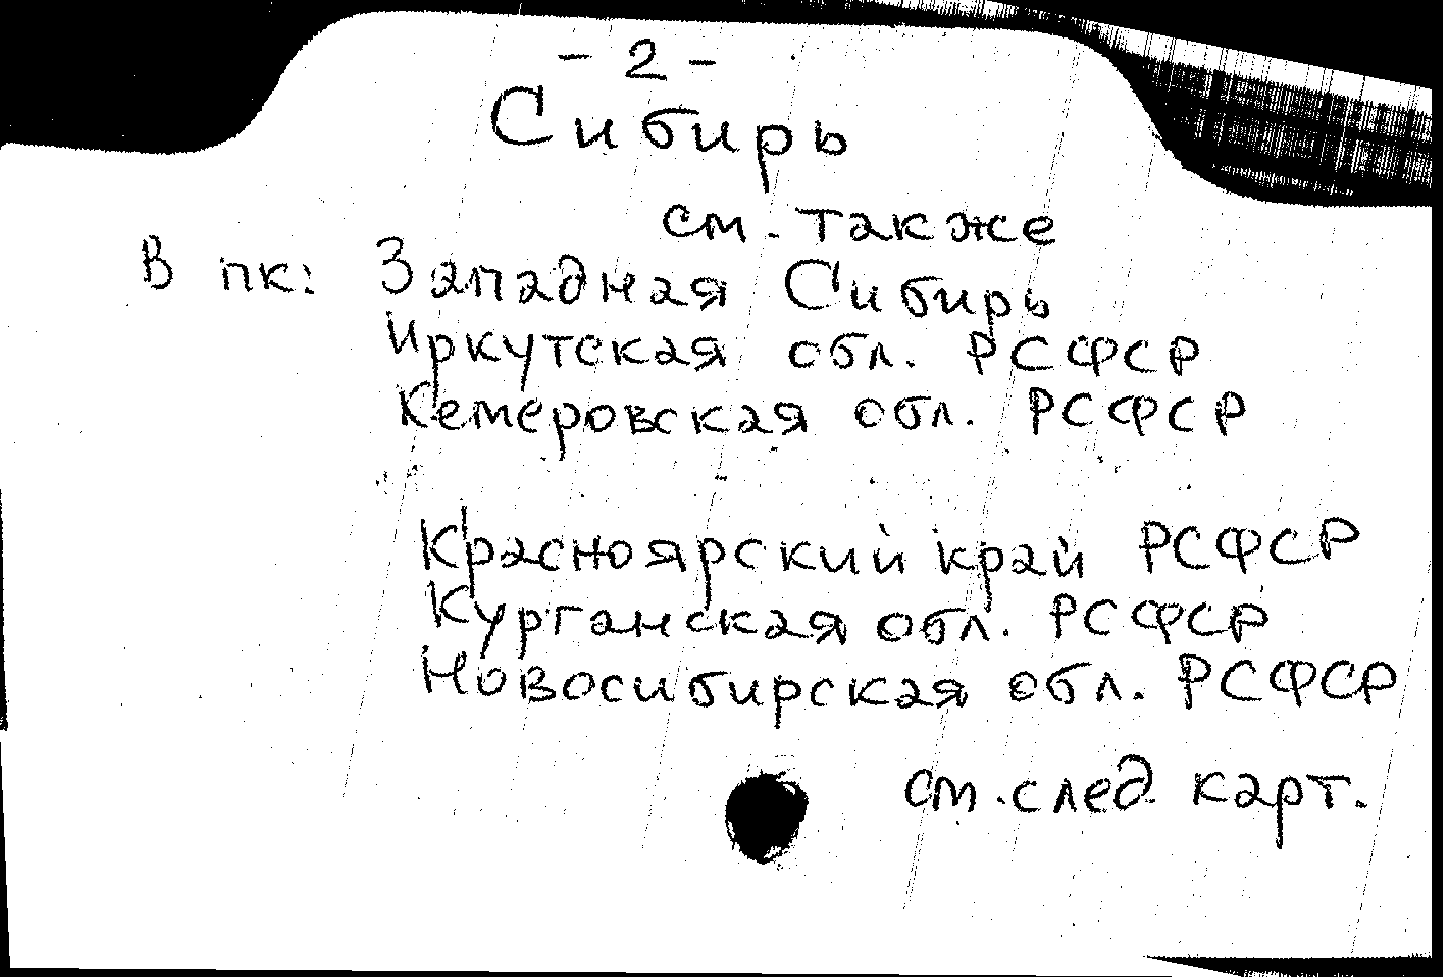 - 2 -
Сибирь
см. также
В пк: Западная Сибирь
Иркутская обл. РСФСР
Кемеровская обл. РСФСР
Красноярский край РСФСР
Курганская обл. РСФСР
Новосибирская обл. РСФСР
см. след. карт.